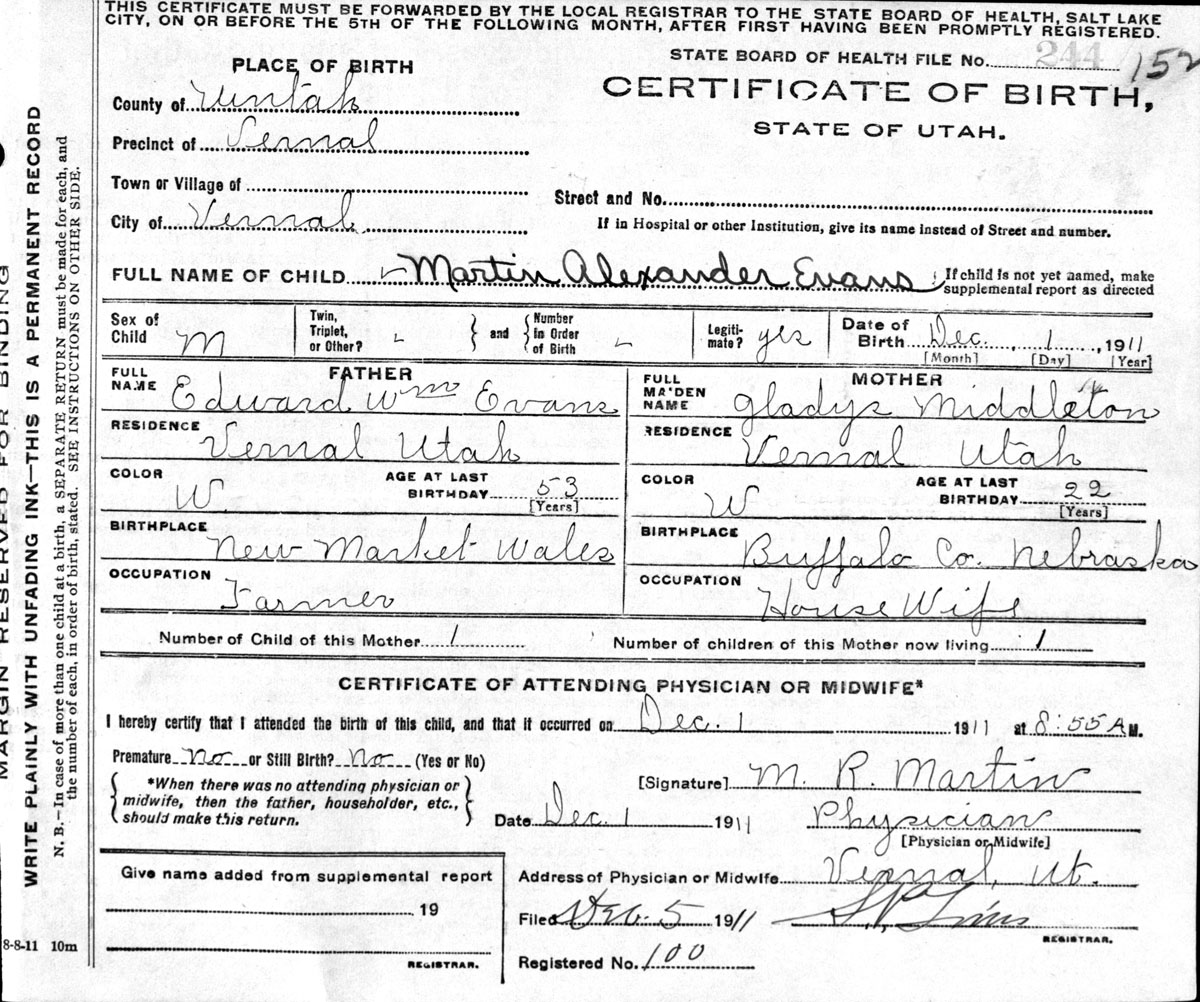 THIS CERTIFICATE MUST BE FORWARDED BY THE LOCAL REGISTRAR TO THE STATE BOARD OF HEALTH, SALT LAKE
CITY, ON OR BEFORE THE 5TH OF THE FOLLOWING MONTH, AFTER FIRST HAVING BEEN PROMPTLY REGISTERED.
STATE BOARD OF HEALTH FILE No. 244 152
PLACE OF BIRTH
CERTIFICATE OF BIRTH,
STATE OF UTAH.
County of Uintah
Precinct of Vernal
Town or Village of
Street and No.
City of Vernal
If in Hospital or other Institution, give its name instead of Street and number.
FULL NAME OF CHILD Martin Alexander Evans
If child is not yet named, make
supplemental report as directed
Sex of Child M
Twin, Triplet, or Other?
and
Number in Order of Birth
Legiti-mate? yes
Date of Birth Dec. 1, 1911
[Month] [Day] [Year]
FATHER
FULL NAME Edward Wm Evans
RESIDENCE Vernal Utah
COLOR W
AGE AT LAST BIRTHDAY 53
[Years]
BIRTHPLACE New Market Wales
OCCUPATION Farmer
MOTHER
FULL MAIDEN NAME Gladys Middleton
RESIDENCE Vernal Utah
COLOR W
AGE AT LAST BIRTHDAY 22
[Years]
BIRTHPLACE Buffalo Co. Nebraska
OCCUPATION House Wife
Number of Child of this Mother 1
Number of children of this Mother now living 1
CERTIFICATE OF ATTENDING PHYSICIAN OR MIDWIFE*
I hereby certify that I attended the birth of this child, and that it occurred on Dec. 1 1911 at 8:55 A M.
Premature No or Still Birth? No (Yes or No)
*When there was no attending physician or
midwife, then the father, householder, etc.,
should make this return.
[Signature] M. R. Martin
Date Dec. 1 1911
Physician
[Physician or Midwife]
Give name added from supplemental report
19
REGISTRAR.
Address of Physician or Midwife Vernal, Ut.
Filed Dec. 5 1911
REGISTRAR.
Registered No. 100
MARGIN RESERVED FOR BINDING
WRITE PLAINLY WITH UNFADING INK—THIS IS A PERMANENT RECORD
N. B.—In case of more than one child at a birth, a SEPARATE RETURN must be made for each, and
the number of each, in order of birth, stated. SEE INSTRUCTIONS ON OTHER SIDE.
8-8-11 10m